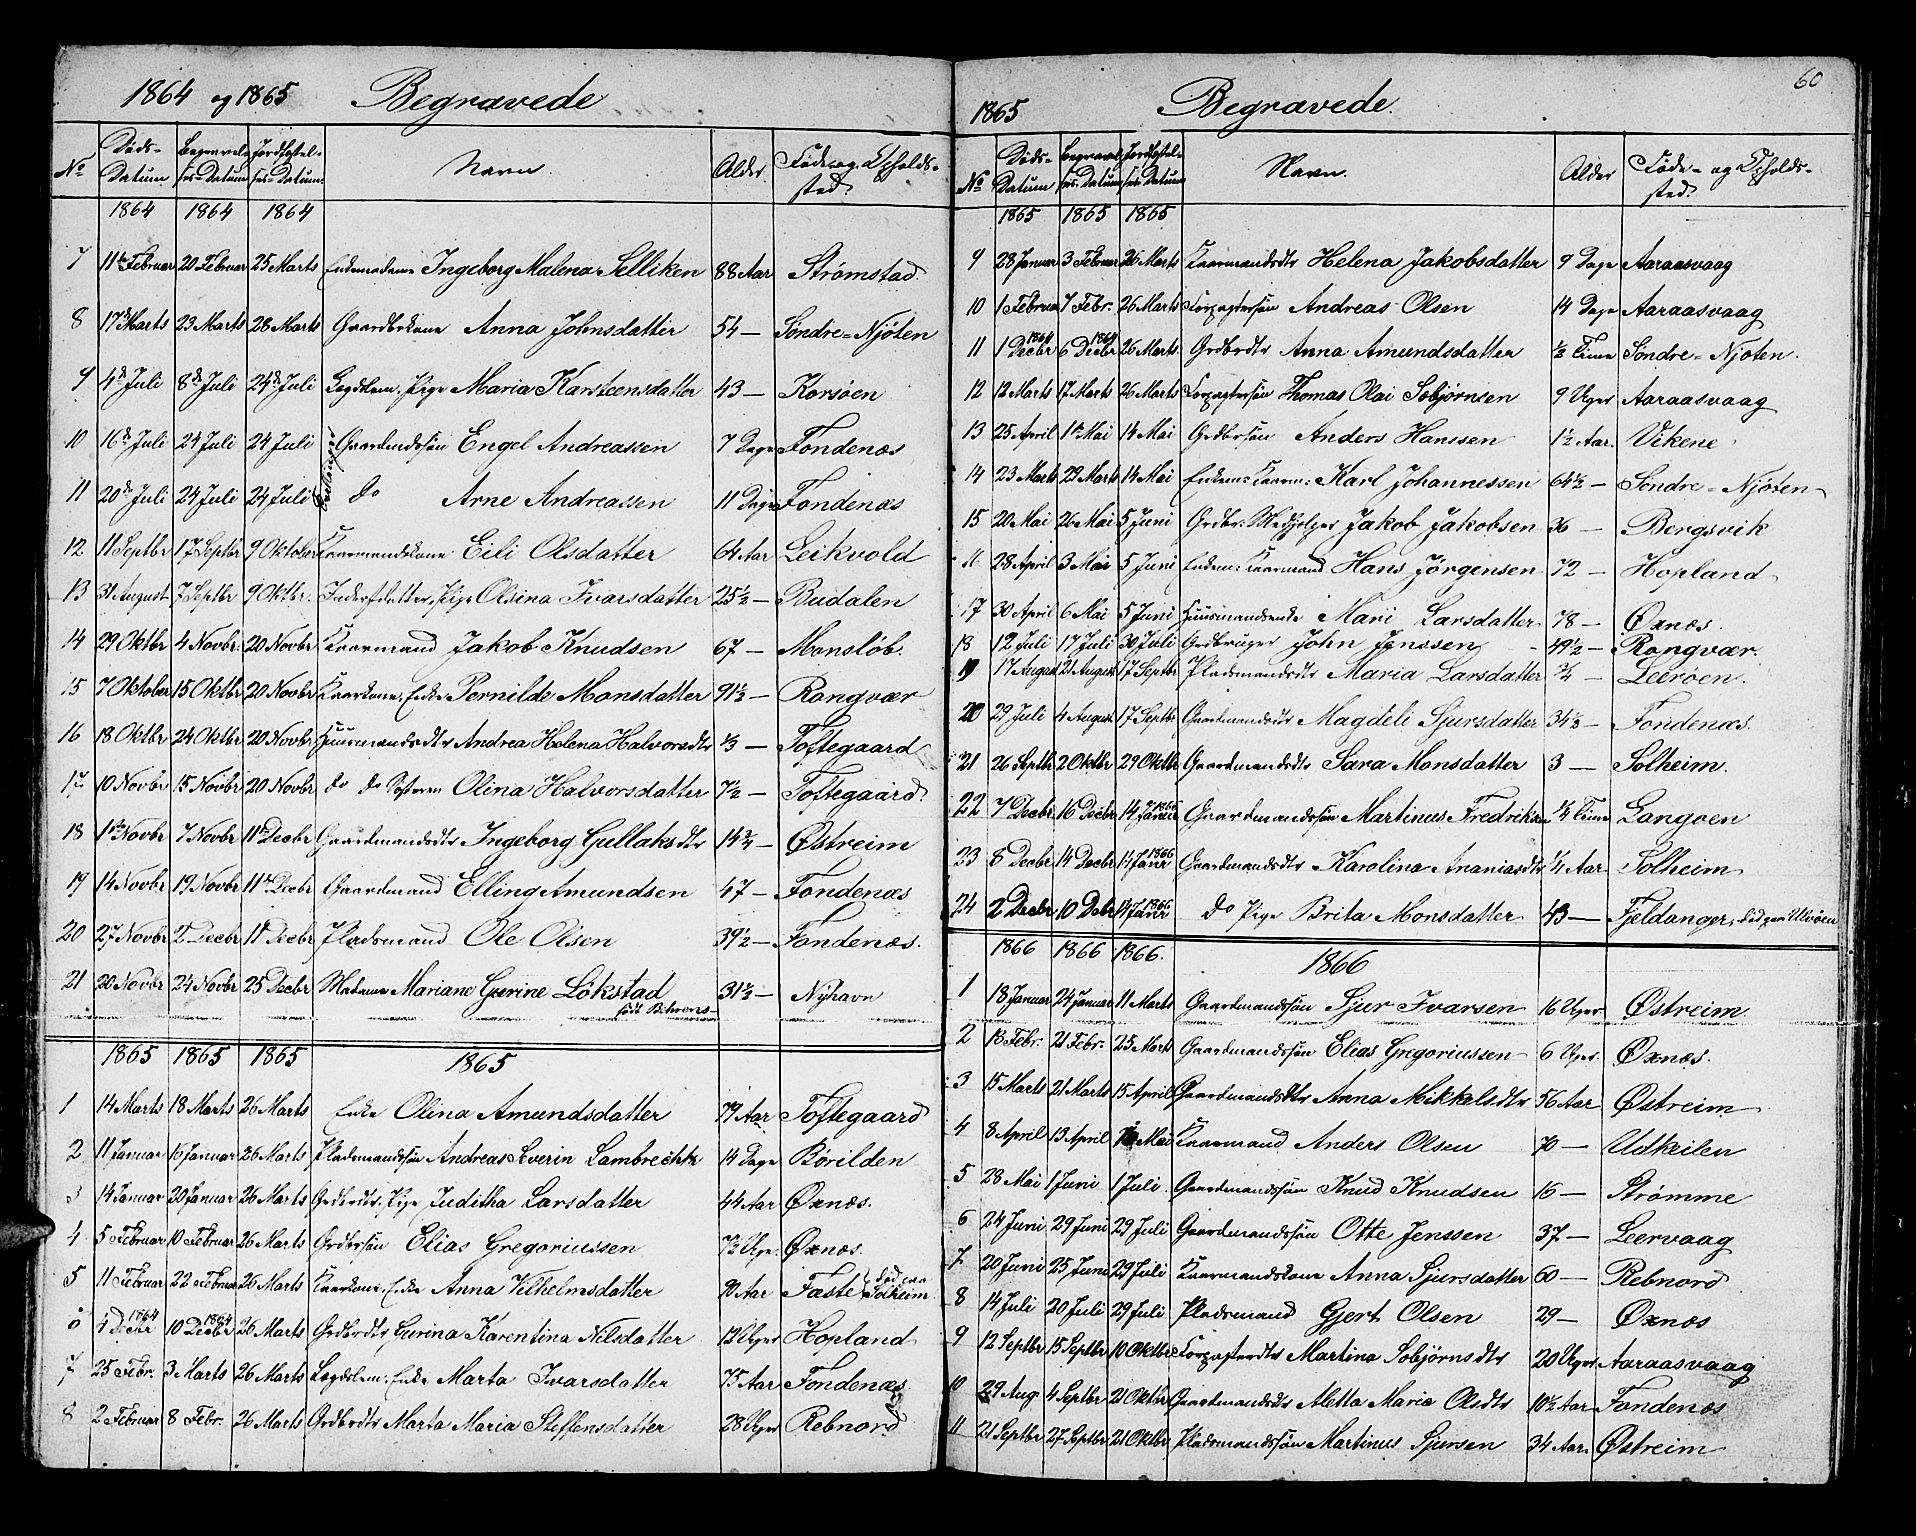 1864 og 1865 Begravede
No Døds-Datum Begravelses-Datum Jordfæstelses-Datum Navn. Alder. Føde- og Opholds-sted.
1864 1864 1864
7 11te Februar 20 Februar 25 Marts Enkemadame Ingeborg Malena Selliken 88 Aar Strømstad.
8 17 Marts 23 Marts 28 Marts Gaardbrkone Anna Johnsdatter 54 — Søndre-Njøten
9 4de Juli 8de Juli 24de Juli Lægdslem, Pige Maria Karsteensdatter 43 — Korsøen
10 16de Juli 24 Juli 24 Juli Tvillinger Gaardmdssøn Engel Andreassen 7 Dage Fondenæs
11 20de Juli 24 Juli 24 Juli do Arne Andreassen 11 Dage Fondenæs
12 11 Septbr 17 Septbr 9 Oktober Kaarmandskone Eili Olsdatter 64 Aar Leikvold
13 31 August 7 Septbr 9 Oktbr. Inderstdatter, Pige Olsina Ivarsdatter 25½ — Budalen
14 29 Oktbr 4 Novbr. 20 Novbr Kaarmand Jakob Knudsen 67 — Monsløb.
15 7 Oktober 15 Oktbr 20 Novbr Kaarkone, Enke Pernilde Monsdatter 91½ — Rongvær
16 18 Oktbr 24 Oktbr 20 Novbr Huusmandsdtr Andrea Helena Halvorsdtr ⅓ — Toftegaard
17 10 Novbr 15 Novbr 20 Novbr do do Søsteren Olina Halvorsdatter 7½ — Toftegaard.
18 1ste Novbr 7 Novbr 11te Decbr Gaardmandsdtr Ingeborg Gullaksdtr 14¾ — Østreim
19 14 Novbr 19 Novbr 11te Decbr Gaardmand Elling Amundsen 47 — Fondenæs
20 27 Novbr 2 Decbr 11 Decbr Pladsmand Ole Olsen 39½ — Fondenæs.
21 20 Novbr 24 Novbr 25 Decbr Madame Mariane Gjerine Lökstad 31½ — Nyhavn
født Behrens
1865 1865 1865 1865
1 14 Marts 18 Marts 26 Marts Enke Olina Amundsdatter 79 Aar Toftegaard
2 11 Januar 16 Januar 26 Marts Pladsmandssøn Andreas Severin Lambrechts 14 Dage Børilden
3 14 Januar 20 Januar 26 Marts Grdbrdtr, Pige Juditha Larsdatter 44 Aar Øxnæs.
4 5 Februar 10 Februar 26 Marts Grdbrsøn Elias Gregoriussen 7½ Uge. Øxnæs.
5 11 Februar 22 Februar 26 Marts Kaarkone, Enke Anna Vilhelmsdatter 90 Aar Fæste død paa Solheim
6 4 Decbr 1864 10 Decbr 1864 26 Marts Grdbrdtr Gurina Karentina Nilsdatter 12 Uger Hopland
7 25 Febr. 3 Marts 26 Marts Lægdslem, Enke Marta Ivarsdatter 75 Aar Fondenæs
8 2 Februar 8 Febr. 26 Marts Grdbrdtr Marta Maria Steffensdatter 28 Uger Rebnord
60
1865 Begravede.
No Døds-Datum Begravelses-Datum Jordfæstelses-Datum Navn. Alder Føde- og Opholds-sted.
1865 1865 1865
9 28 Januar 3 Februar 26 Marts Kaarmandsdtr Helena Jakobsdatter 9 Dage Aaraasvaag
10 1 Februar 7 Febr. 26 Marts Forpagtersøn Andreas Olsen 14 Dage Aaraasvaag
11 1 Decbr 1864 6 Decbr 1864 26 Marts Grdbrdtr Anna Amundsdatter ½ Time Søndre-Njøten.
12 12 Marts 17 Marts 26 Marts Forpagtersøn Thomas Olai Sobjørnsen 9 Uger Aaraasvaag
13 25 April 1ste Mai 14 Mai Grdbrsøn Anders Hanssen 1½ Aar. Vikene
14 23 Marts 29 Marts 14 Mai Enkem: Kaarm: Karl Johannessen 64½ — Søndre-Njøten
15 20 Mai 26 Mai 5 Juni Grdbr: Medhjelper Jakob Jakobsen 36 — Bergsvik
28 April 3 Mai 5 Juni Enkem: Kaarmand Hans Jørgensen 72 — Hopland
17 30 April 6 Mai 5 Juni Huusmandsenke Mari Larsdatter 78 — Øxnæs.
18 12 Juli 17 Juli 30 Juli Grdbruger John Jenssen 49½ — Rongvær.
19 17 August 21 August 17 Septbr Pladsmandsdtr Maria Larsdatter ¾ — Leerøen.
20 29 Juli 4 August 17 Septbr Gaardmandsdtr Magdeli Sjursdatter 34½ — Fondenæs.
21 26 Septbr 2 Oktbr 29 Oktbr Gaardmandsdtr Sara Monsdatter 3 — Solheim.
22 7 Decbr 16 Decbr 14 Januar 1866 Gaardmandssøn Martinus Fredriksen ¼ Time Langøen
23 8 Decbr 14 Decbr 14 Janr 1866 Gaardmandsdtr Karolina Ananiasdtr ¼ Aar Solheim
24 2 Decbr 10 Debr 14 Janr 1866 do Pige Brita Monsdatter 43 — Fjeldanger, død paa Ulvøen
1866 1866 1866. 1866
1 18 Januar 24 Januar 11 Marts Gaardmandssøn Sjur Ivarsen 16 Uger Østreim
2 18 Febr. 21 Febr. 25 Marts Gaardmandssøn Elias Gregoriussen 6 Uger. Øxnæs.
3 15 Marts 21 Marts 15 April Gaardmandsdtr Anna Mikkelsdtr 56 Aar Østreim
4 8 April 13 April Mai Kaarmand Anders Olsen 70 — Udkeilen
5 28 Mai 1 Juni 1 Juli. Gaardmandssøn Knud Knudsen 16 — Strømme
6 24 Juni 29 Juni 29 Juli Gaardmandssøn Otte Jenssen 37 — Leervaag
7 20 Juni 25 Juni 29 Juli Kaarmandskone Anna Sjursdatter 60 — Rebnord
8 14 Juli 20 Juli 29 Juli Pladsmand Gjert Olsen 29 — Øxnæs
9 12 Septbr 15 Septbr 10 Oktbr Forpagterdtr Martina Sobjørnsdtr 20 Uger Aaraasvaag
10 29 Aug 4 Septbr 21 Oktbr Gaardmandsdtr Aletta Maria Olsdtr 10½ Aar Fondenæs
11 21 Septbr 27 Septbr 21 Oktbr Pladsmandssøn Martinus Sjursen 34 Aar. Østreim